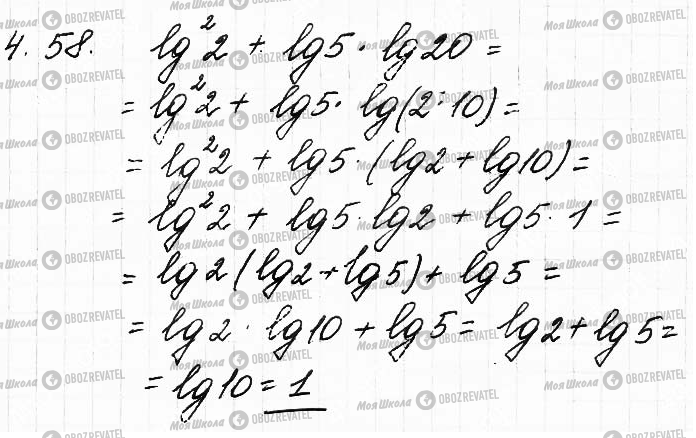 4.58. lg²2 + lg5 · lg20 =
= lg²2 + lg5 · lg(2 · 10) =
= lg²2 + lg5 · (lg2 + lg10) =
= lg²2 + lg5 · lg2 + lg5 · 1 =
= lg2(lg2 + lg5) + lg5 =
= lg2 · lg10 + lg5 = lg2 + lg5 =
= lg10 = 1
Моя Школа OBOZREVATEL